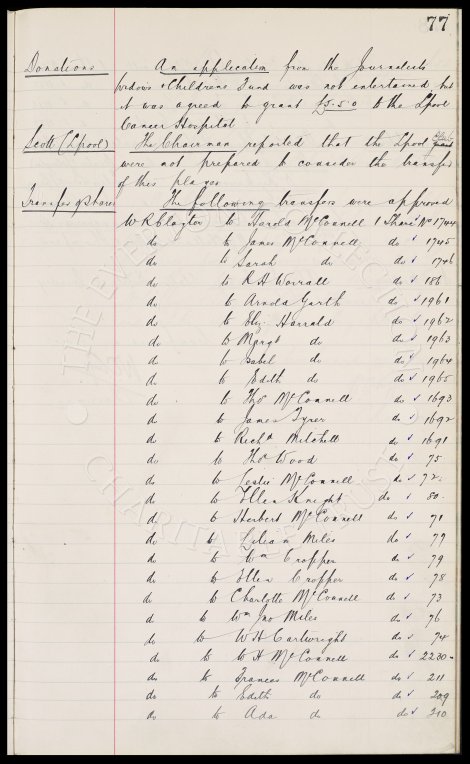 77
Donations An application from the Journalists
Widows & Childrens Fund was not entertained but
it was agreed to grant £5.5.0 to the Lpool
Cancer Hospital
Scott (Lpool) The Chairman reported that the Lpool
were not prepared to consider the transfer
of this player
Transfer of Shares The following transfers were approved
W R Clayton to Harold McConnell 1 Share No 1744
do to James McConnell do 1745
do to Sarah do do 1746
do to R H Worrall do 186
do to Arnold Garth do 1961
do to Eliz. Harrald do 1962
do to Margt do do 1963
do to Isabel do do 1964
do to Edith do do 1965
do to Thos McConnell do 1693
do to James Tyrer do 1692
do to Richd Mitchell do 1691
do to Thos Wood do 75
do to Leslie McConnell do 72
do to Ellen Knight do 80
do to Herbert McConnell do 71
do to Lilian Miles do 79
do to Wm Cropper do 79
do to Ellen Cropper do 78
do to Charlotte McConnell do 73
do to Wm Jno Miles do 76
do to W H Cartwright do 74
do to W H McConnell do 2230
do to Frances McConnell do 211
do to Edith do do 209
do to Ada do do 210
THE EVERTON COLLECTION
CHARITABLE TRUST